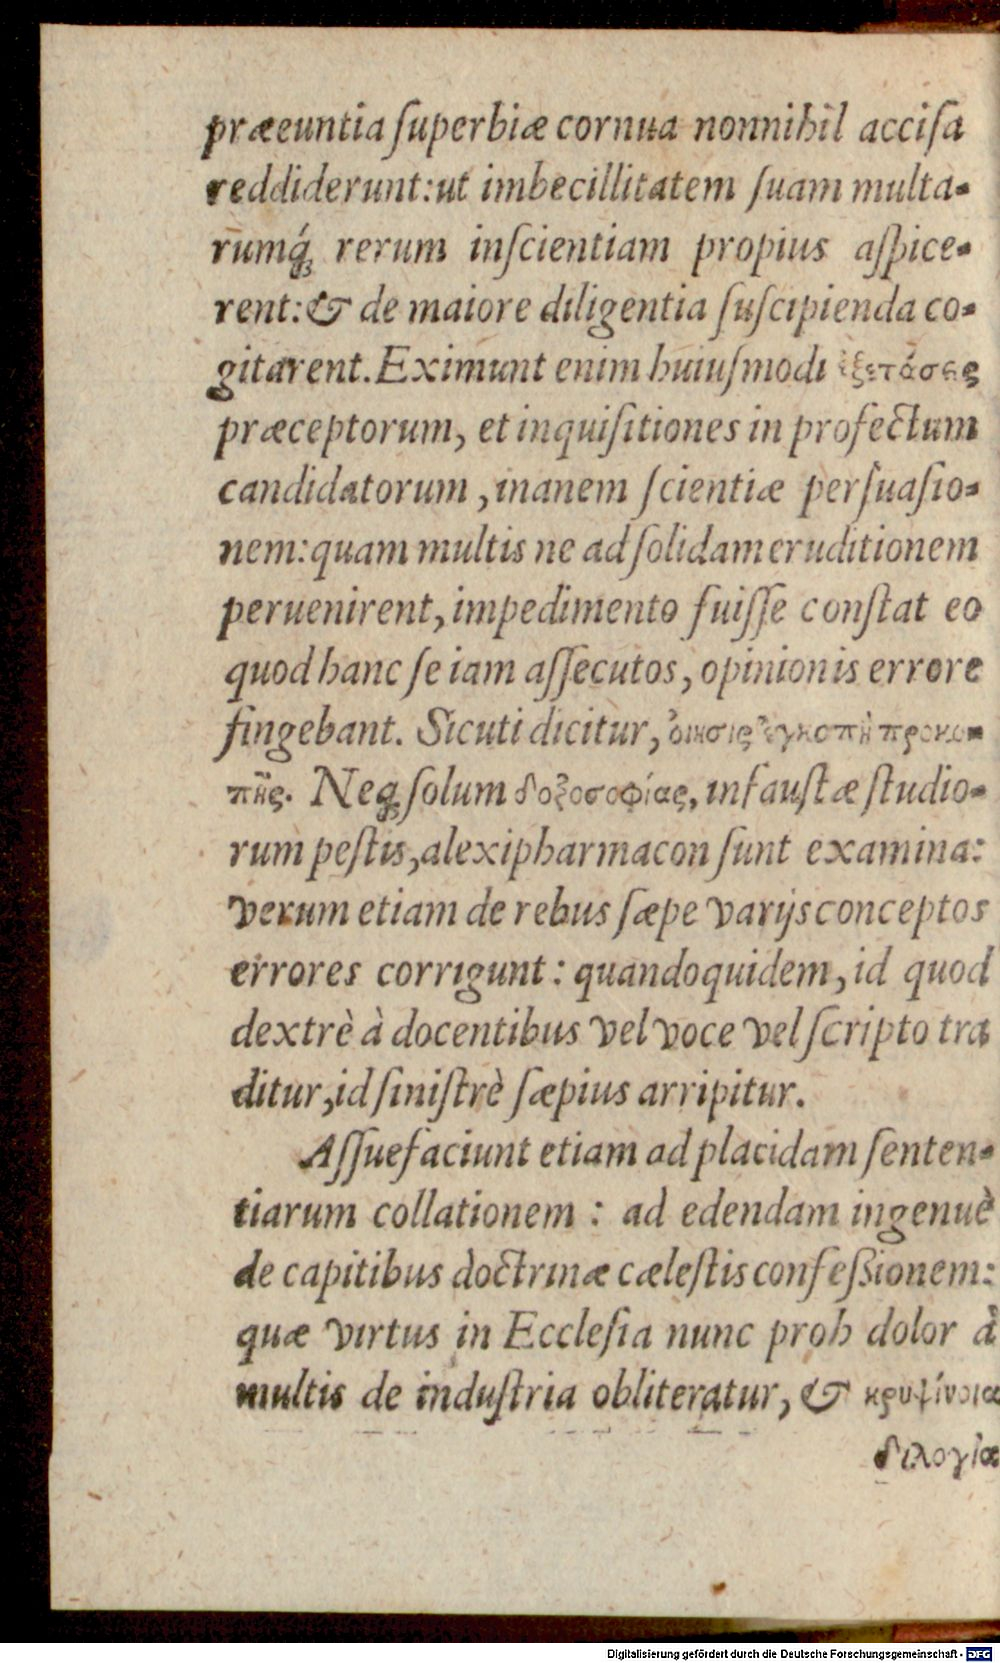 præeuntia ſuperbiæ cornua nonnihil acciſa
reddiderunt: ut imbecillitatem ſuam multa-
rumq́; rerum inſcientiam propius aſpice-
rent: & de maiore diligentia ſuſcipienda co-
gitarent. Eximunt enim huiuſmodi ἐξετάσεις
præceptorum, et inquiſitiones in profectum
candidatorum, inanem ſcientiæ perſuaſio-
nem: quam multis ne ad ſolidam eruditionem
peruenirent, impedimento fuiſſe conſtat eo
quod hanc ſe iam aſſecutos, opinionis errore
fingebant. Sicuti dicitur, ὄιησις ἐγκοπὴ προκο-
πῆς. Neq; ſolum δοξοσοφίας, infauſtæ ſtudio-
rum peſtis, alexipharmacon ſunt examina:
verum etiam de rebus ſæpe varijs conceptos
errores corrigunt: quandoquidem, id quod
dextrè à docentibus vel voce vel ſcripto tra
ditur, id ſiniſtrè ſæpius arripitur.
Aſſuefaciunt etiam ad placidam ſenten-
tiarum collationem: ad edendam ingenuè
de capitibus doctrinæ cæleſtis confeſsionem:
quæ virtus in Eccleſia nunc proh dolor à
multis de induſtria obliteratur, & κρυψίνοια
διλογία
Digitalisierung gefördert durch die Deutsche Forschungsgemeinschaft - DFG